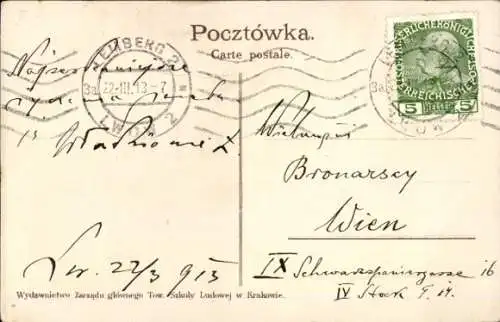 Pocztówka.
Carte postale.
LEMBERG 2
3a 22.III.13 - 7
LWÓW 2
KAISERLICHE KÖNIGLICHE
ÖSTERREICHISCHE POST
5 HELLER 5
Najserdeczniejsze
życzenia
Wielmożni
Bronarscy
Wien
IX Schwarzspaniergasse 16
IV Stock T. 14.
Lw. 22/3 913
Wydawnictwo Zarządu głównego Tow. Szkoły Ludowej w Krakowie.